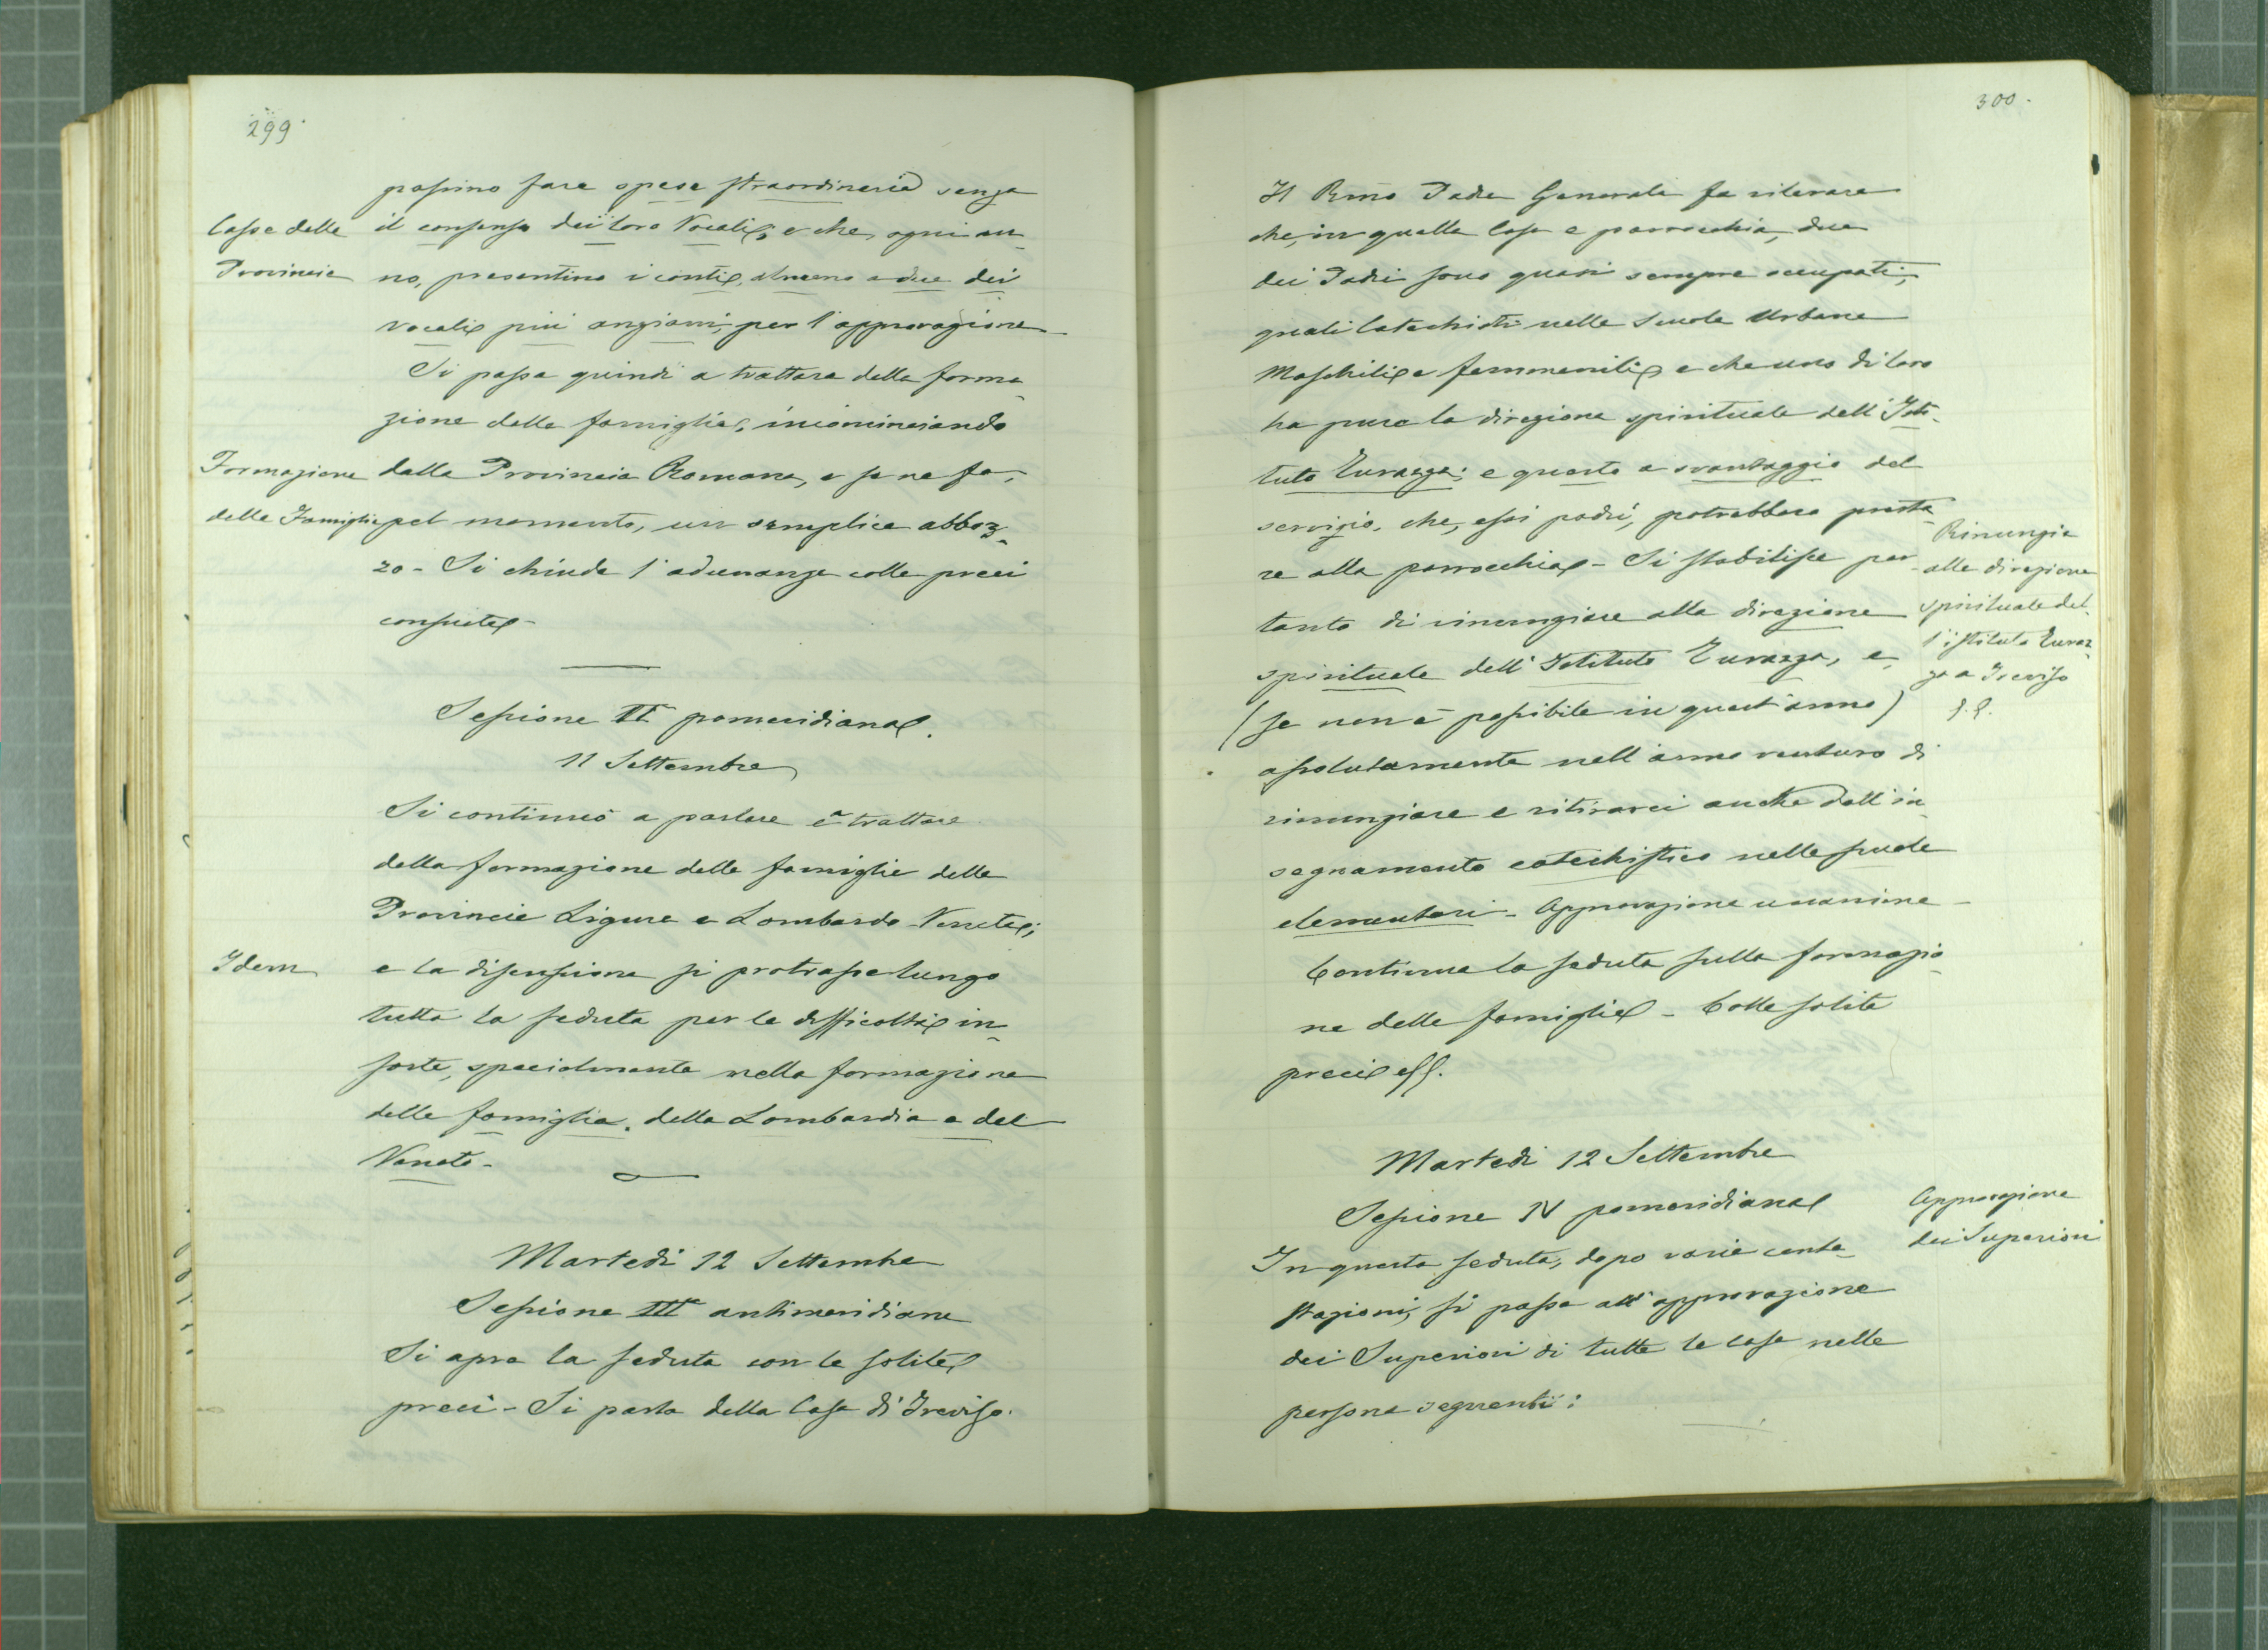 299.
possino fare spese straordinarie senza
Casse delle
Provincie
il consenso dei loro Vocali, e che, ogni an-
no, presentino i conti, almeno a due dei
vocali più anziani, per l'approvazione
Si passa quindi a trattare della forma-
zione delle famiglie, incominciando
Formazione
delle Famiglie
dalla Provincia Romana, e se ne fa,
pel momento, un semplice abboz-
zo - Si chiude l'adunanza colle preci
consuete -
Sessione II pomeridiana.
11 Settembre
Si continuò a parlare e trattare
della formazione delle famiglie delle
Provincie Ligure e Lombardo-Veneta;
Idem
e la discussione si protrasse lungo
tutta la seduta per le difficoltà in-
sorte, specialmente nella formazione
delle famiglie, della Lombardia e del
Veneto -
Martedì 12 Settembre
Sessione III antimeridiana
Si apre la seduta con le solite
preci - Si parla della Casa di Treviso.
300.
Il Rmo Padre Generale fa rilevare
che, in quella Casa e parrocchia, due
dei Padri sono quasi sempre occupati,
quali Catechisti nelle Scuole Urbane
Maschili e femmenili, e che uno di loro
ha pure la direzione spirituale dell'Isti-
tuto Turazza; e questo a svantaggio del
servizio, che, essi padri, potrebbero presta-
re alla parrocchia - Si stabilisce per-
tanto di rinunziare alla direzione
spirituale dell'Istituto Turazza, e,
(se non è possibile in quest'anno)
assolutamente nell'anno venturo di
rinunziare e ritirarci anche dall'in-
segnamento catechistico nelle scuole
elementari - Approvazione unanime -
Rinunzia
alla direzione
spirituale del-
l'istituto Turaz-
za a Treviso
Continua la seduta sulla formazio-
ne delle famiglie - Colle solite
preci
Martedì 12 Settembre
Sessione IV pomeridiana
Approvazione
dei Superiori
In questa seduta, dopo varie conte-
stazioni, si passa all'approvazione
dei Superiori di tutte le case nelle
persone seguenti: